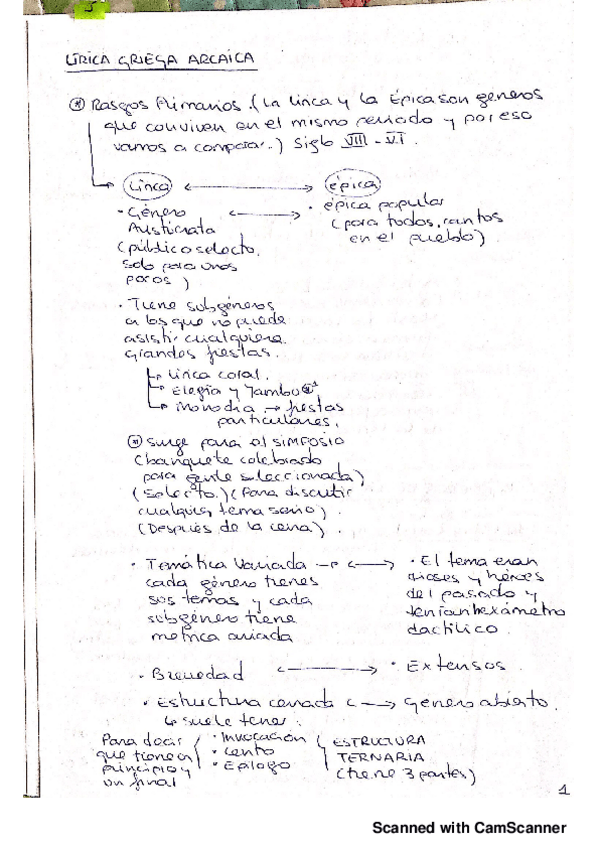 5
LÍRICA GRIEGA ARCAICA
* Rasgos Primarios. (La lírica y la épica son géneros
que conviven en el mismo periodo y por eso
vamos a comparar.) Siglo VIII - VI.
Lírica ↔ épica
· Género ↔ · épica popular
Austícrata (para todos, cantos
(público selecto, en el pueblo)
solo para unos
pocos)
· Tiene subgéneros
a los que no puede
asistir cualquiera.
grandes fiestas.
↳ Lírica coral.
↳ Elegía y Yambo
↳ Monodia → fiestas
particulares.
* surge para el SIMPOSIO
(banquete celebrado
para gente seleccionada)
(selecto.) (Para discutir
cualquier tema serio).
(Después de la cena).
· Temática Variada → ↔ · El tema eran
cada género tienes dioses y héroes
sus temas y cada del pasado y
subgénero tiene tenían hexámetro
métrica variada dactílico.
· Brevedad ↔ · Extensos.
· Estructura cerrada ↔ género abierto.
↳ suele tener.
Para decir · Invocación ESTRUCTURA
que tienen · Centro TERNARIA
principio y · Epílogo (tiene 3 partes)
un final
1
Scanned with CamScanner